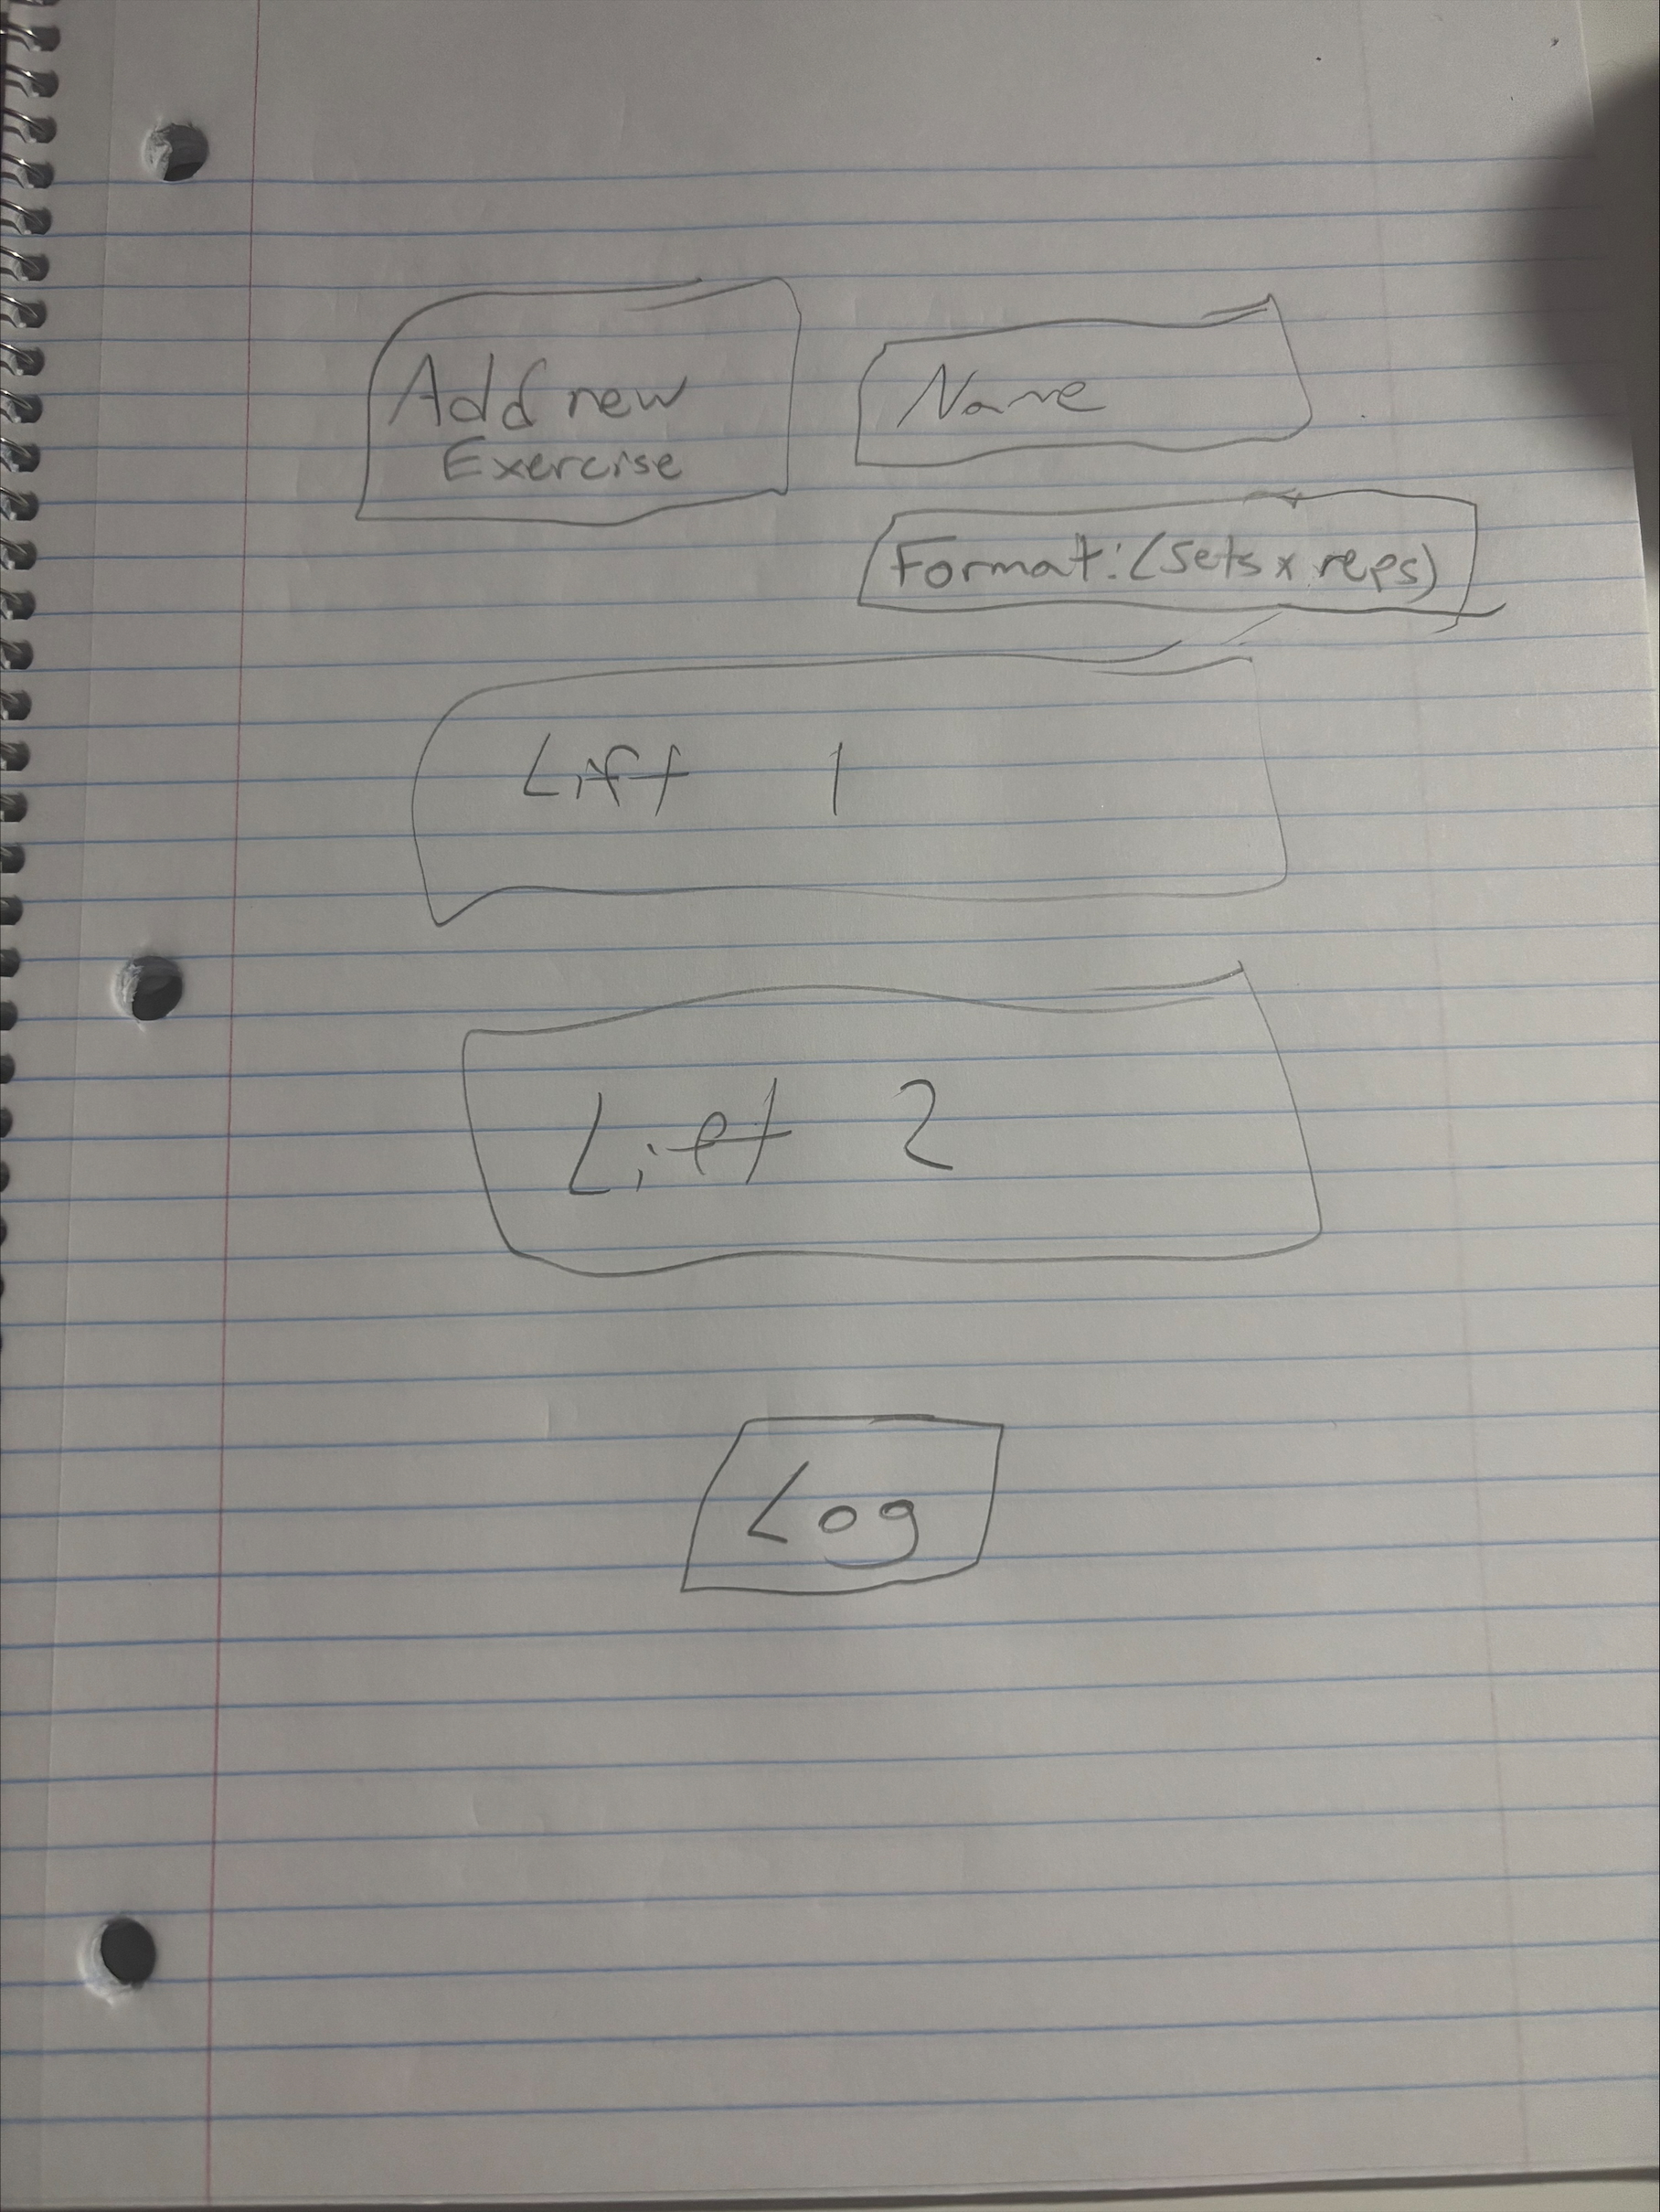 Add new
Exercise
Name
Format: (sets x reps)
Lift 1
Lift 2
Log